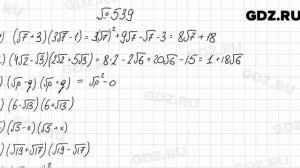 GDZ.RU
№539
) (√7+3)(3√7-1)=3(√7)²+9√7-√7-3=8√7+18
) (4√2-√3)(2√2+5√3)=8·2-2√6+20√6-15=1+18√6
) (√p-q)(√p+q)=√p²-0
) (6-√13)(6+√13)
) (√5-x)(√5+x)
) (√19+√17)(√19-√17)
GDZ.RU